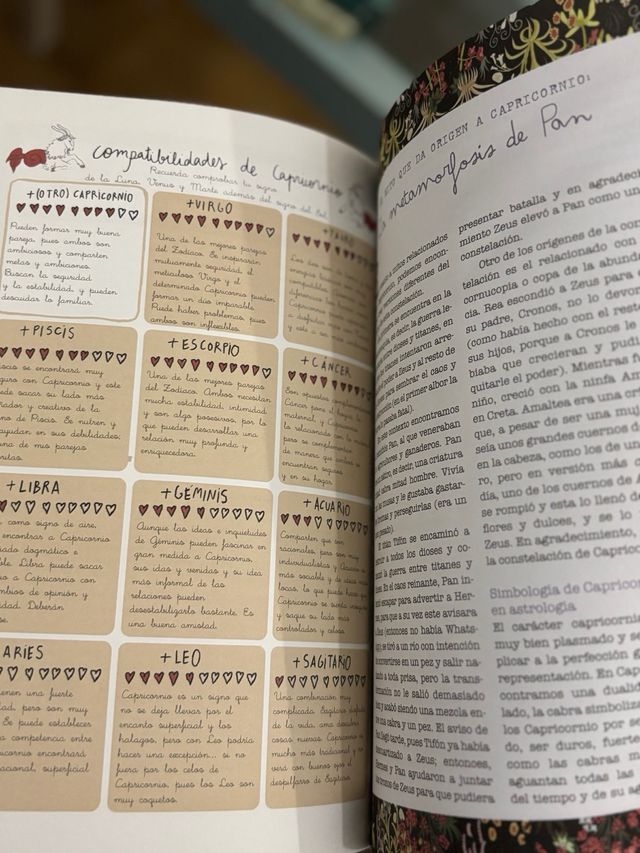 compatibilidades de Capricornio
Recuerda comprobar tu signo
de la Luna, Venus y Marte además del signo del Sol.
+(OTRO) CAPRICORNIO
Pueden formar muy buena
pareja, pues ambos son
ambiciosos y comparten
metas y ambiciones.
Buscan la seguridad
y la estabilidad, y pueden
descuidar lo familiar.
+VIRGO
Una de las mejores parejas
del Zodíaco. Se inspirarán
mutuamente seguridad, el
meticuloso Virgo y el
determinado Capricornio pueden
formar un dúo imparable.
Puede haber problemas, pues
ambos son inflexibles.
+ PISCIS
se encontrará muy
con Capricornio y este
sacar su lado más
y creativo de la
de Piscis. Se nutren y
ayudan en sus debilidades;
una de mis parejas
+ ESCORPIO
Una de las mejores parejas
del Zodíaco. Ambos necesitan
mucha estabilidad, intimidad
y son algo posesivos, por lo
que pueden desarrollar una
relación muy profunda y
enriquecedora.
+ CÁNCER
Son opuestos
Cáncer pone el
maternal, y Capricornio
lo relacionado con
pero se complementan
de manera que ambos se
encuentran seguros
y en su hogar.
+ LIBRA
como signo de aire,
encontrar a Capricornio
dogmático e
Libra puede sacar
a Capricornio con
de opinión y
Deberán
+ GÉMINIS
Aunque las ideas e inquietudes
de Géminis pueden fascinar en
gran medida a Capricornio,
sus idas y venidas y su idea
más informal de las
relaciones pueden
desestabilizarlo bastante. Es
una buena amistad.
+ ACUARIO
Comparten que son
racionales, pero muy
individualistas y Acuario es
más social y de ideas más
locas, lo que puede hacer que
Capricornio se sienta inseguro
y saque su lado más
controlador y celoso.
ARIES
tienen una fuerte
pero son muy
Se puede establecer
competencia entre
encontrará
superficial
+ LEO
Capricornio es un signo que
no se deja llevar por el
encanto superficial y los
halagos, pero con Leo podría
hacer una excepción... si no
fuera por los celos de
Capricornio, pues los Leo son
muy coquetos.
+ SAGITARIO
Una combinación muy
complicada. Sagitario disfruta
de la vida, ama descubrir
cosas nuevas. Capricornio es
mucho más tradicional y no
verá con buenos ojos el
despilfarro de Sagitario.
QUE DA ORIGEN A CAPRICORNIO:
metamorfosis de Pan
mitos relacionados
podemos encon-
diferentes del
constelación.
se encuentra en la
es decir, la guerra le-
entre dioses y titanes, en
titanes intentaron arre-
el poder a Zeus y al resto de
para sembrar el caos y
(en el primer albor la
pasaba fatal).
este contexto encontramos
Pan, al que veneraban
y ganaderos. Pan
es decir, una criatura
cabra mitad hombre. Vivía
musas y le gustaba gastar-
bromas y perseguirlas (era un
pesado).
El titán Tifón se encaminó a
a todos los dioses y co-
la guerra entre titanes y
En el caos reinante, Pan in-
escapar para advertir a Her-
para que a su vez este avisara
(entonces no había Whats-
se tiró a un río con intención
convertirse en un pez y salir na-
a toda prisa, pero la transfor-
no le salió demasiado
y acabó siendo una mezcla en-
una cabra y un pez. El aviso de
llegó tarde, pues Tifón ya había
a Zeus; entonces,
y Pan ayudaron a juntar
de Zeus para que pudiera
presentar batalla y en agradeci-
miento Zeus elevó a Pan como un
constelación.
Otro de los orígenes de la con
telación es el relacionado con
cornucopia o copa de la abunda
cia. Rea escondió a Zeus para
su padre, Cronos, no lo devor
(como había hecho con el rest
sus hijos, porque a Cronos le
biaba que crecieran y pudi
quitarle el poder). Mientras
niño, creció con la ninfa Am
en Creta. Amaltea era una cr
que, a pesar de ser una mu
seía unos grandes cuernos d
en la cabeza, como los de un
ro, pero en versión más
día, uno de los cuernos de A
se rompió y esta lo llenó d
flores y dulces, y se lo
Zeus. En agradecimiento,
la constelación de Capric
Simbología de Caprico
en astrología
El carácter capricornia
muy bien plasmado y se
plicar a la perfección g
representación. En Cap
contramos una dualid
lado, la cabra simboliz
los Capricornio por se
do, ser duros, fuerte
como las cabras m
aguantan todas las
del tiempo y de su ag